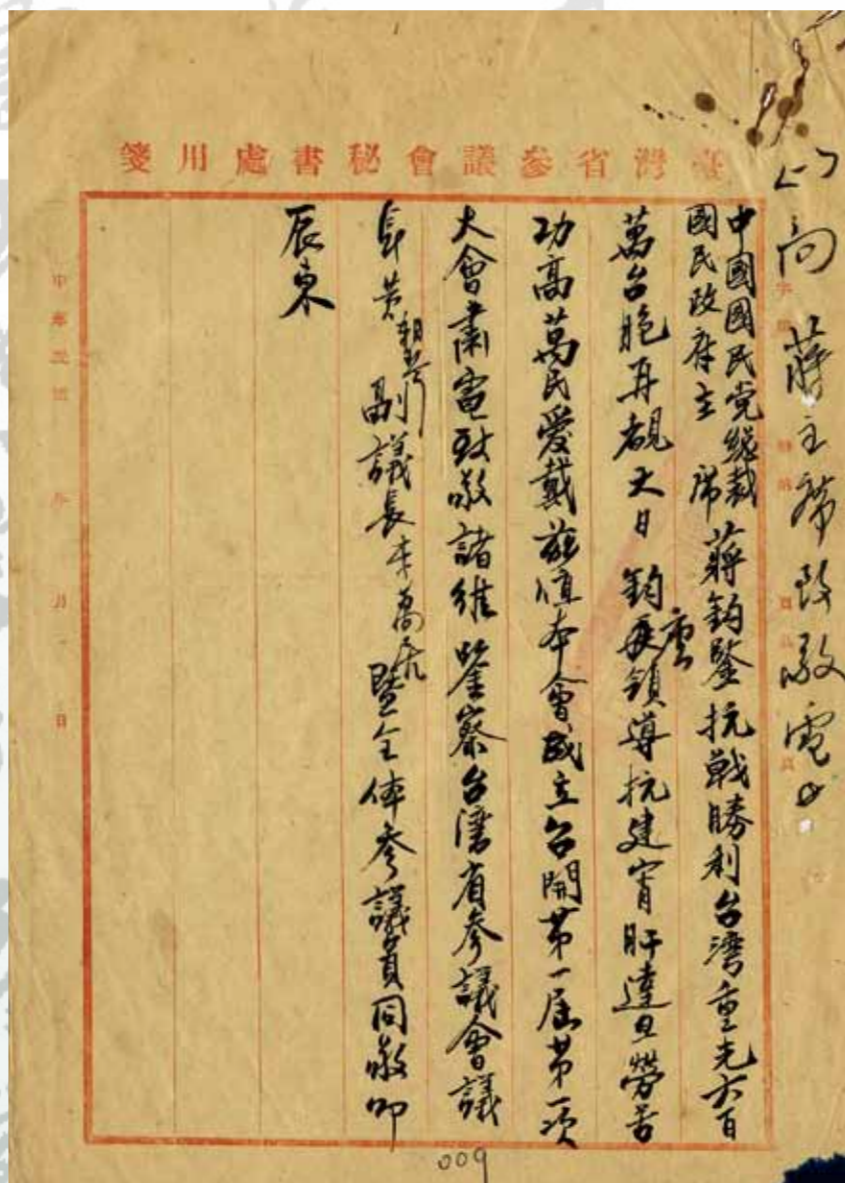 臺灣省參議會秘書處用箋
向蔣主席致敬電
中國國民党總裁
國民政府主席 蔣鈞鑒抗戰勝利台灣重光六百
萬台胞再覩天日 鈞座領導抗建宵旰達旦勞苦
功高萬民愛戴茲值本會成立召開第一屆第一次
大會肅電致敬諸維 鑒察台灣省參議會議
長黃朝琴副議長李萬居暨全体參議員同敬叩
辰東
中華民國 年 月 日
009